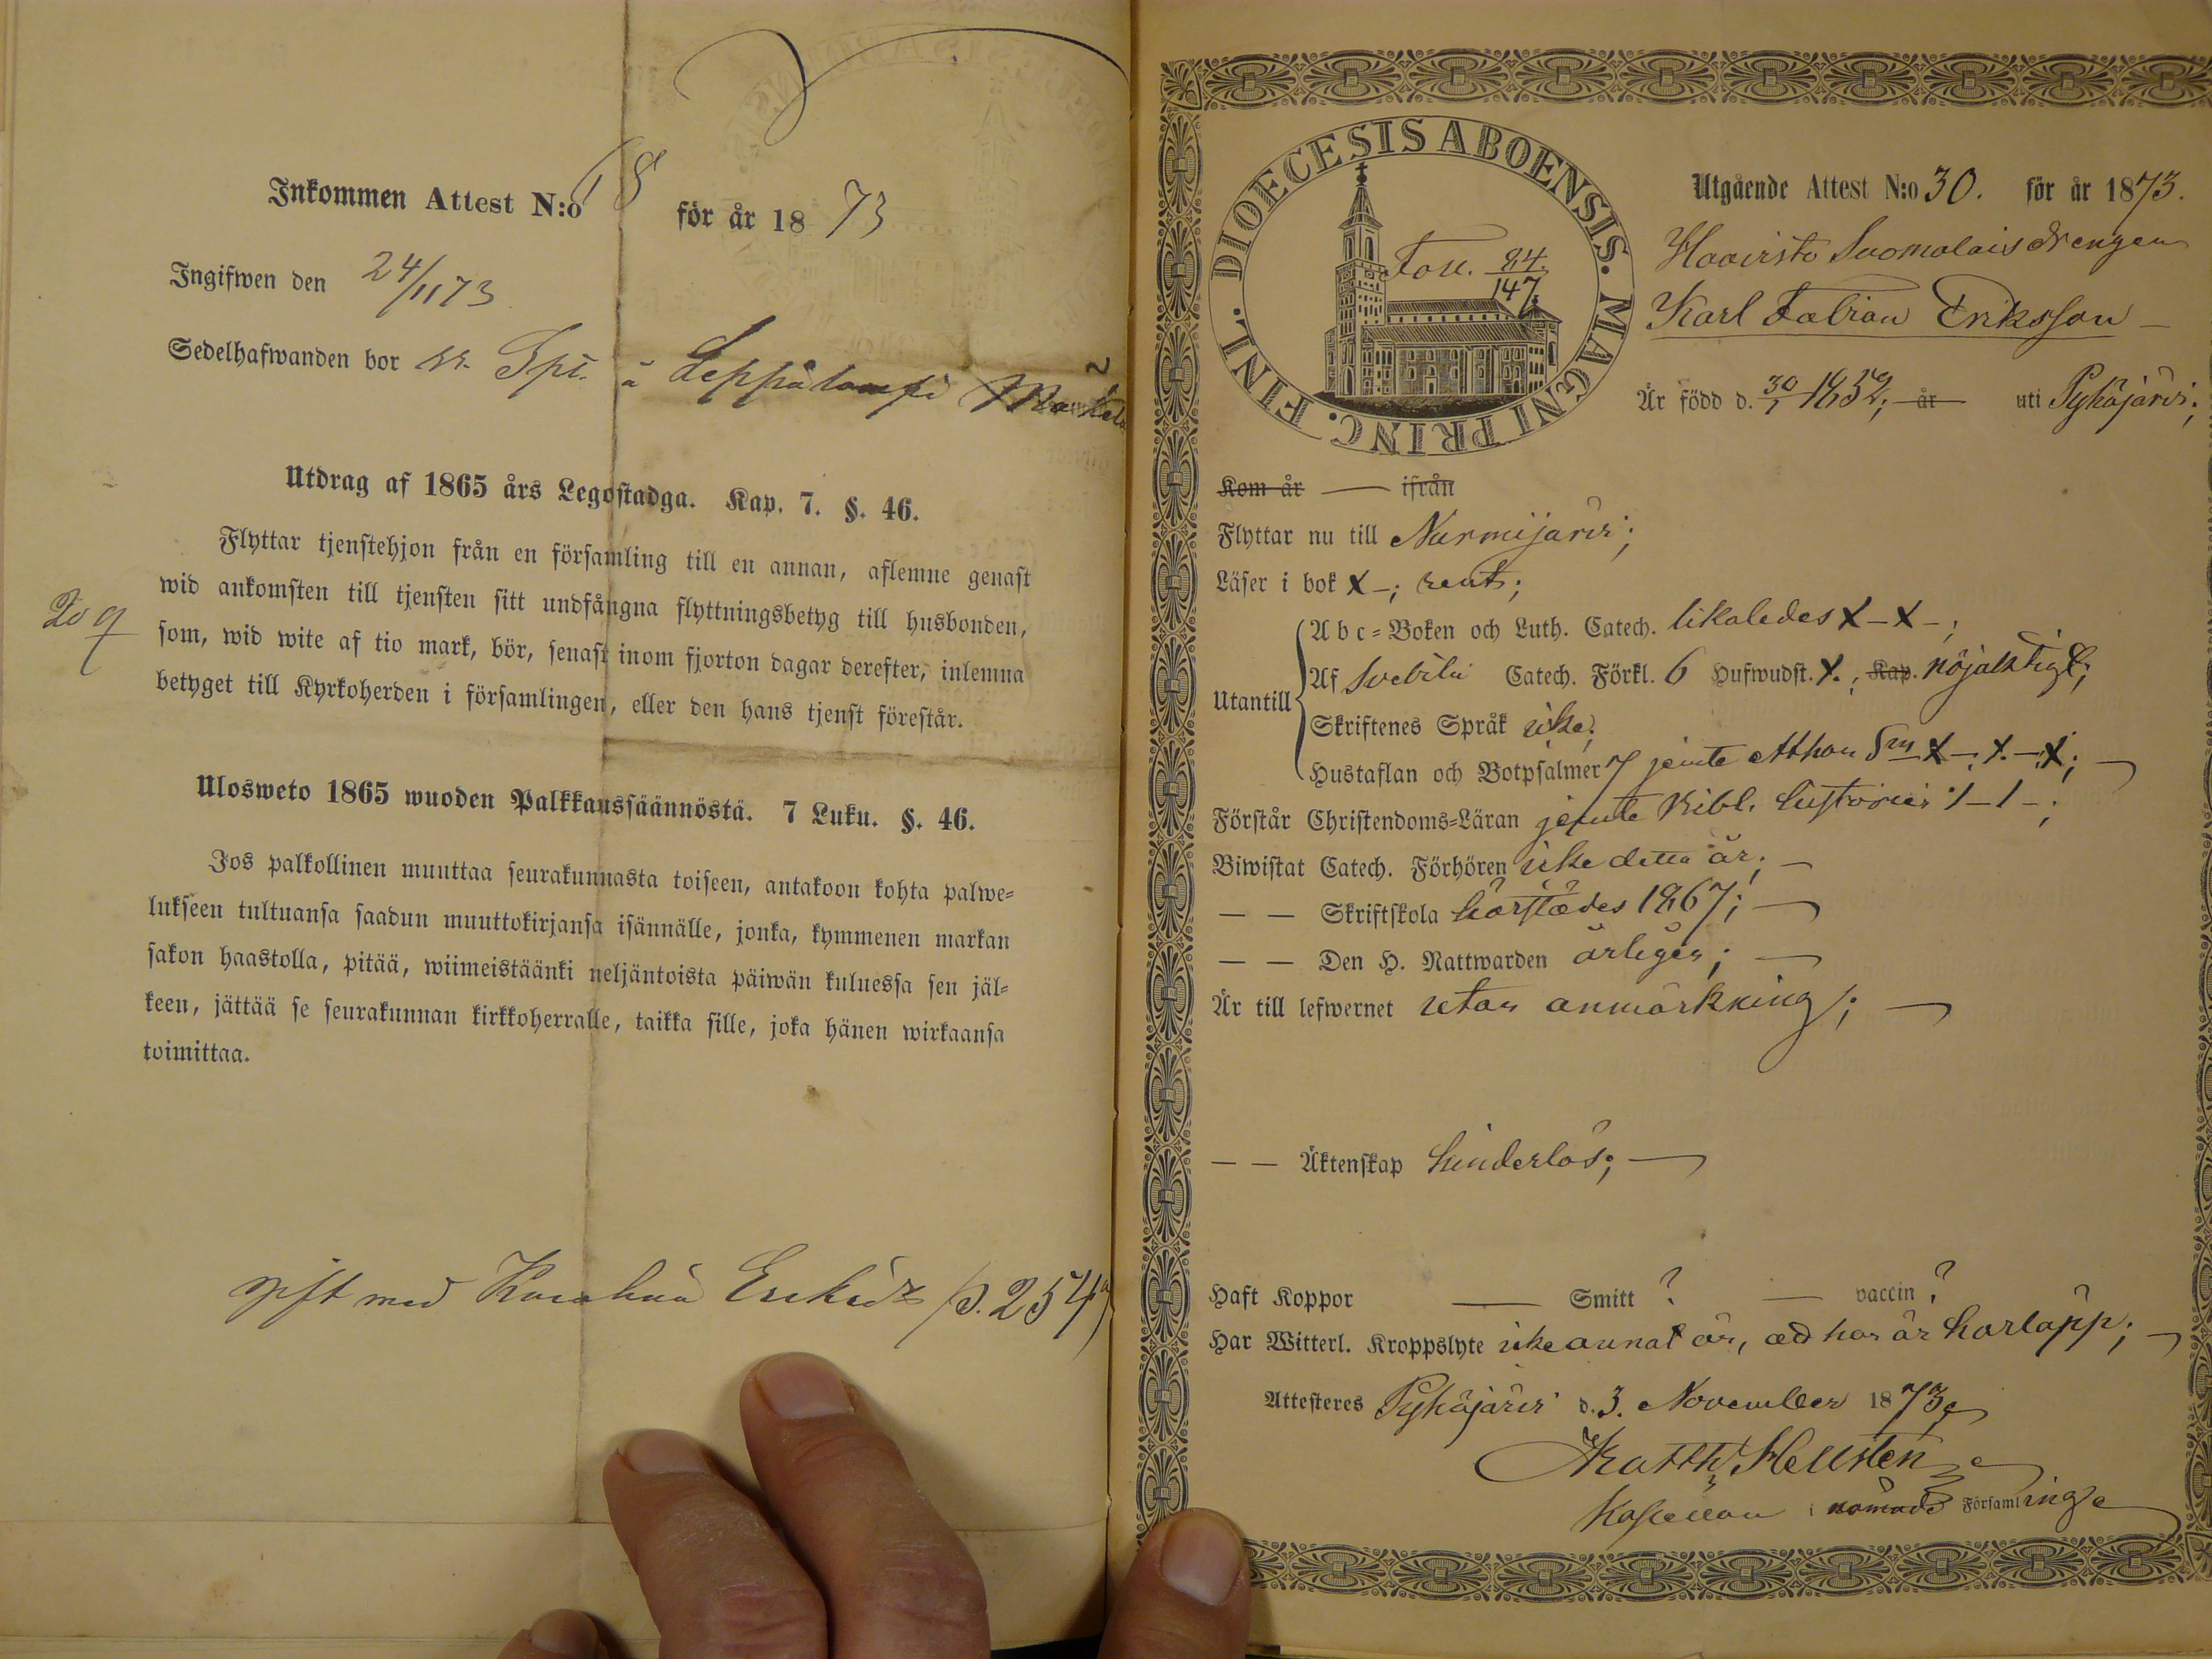 Inkommen Attest N:o 18 för år 1873
Ingifwen den 24/11 73
Sedelhafwanden bor å Leppälampi
Utdrag af 1865 års Legostadga. Kap. 7. §. 46.
Flyttar tjenstehjon från en församling till en annan, aflemne genast
wid ankomsten till tjensten sitt undfångna flyttningsbetyg till husbonden,
som, wid wite af tio mark, bör, senast inom fjorton dagar derefter, inlemna
betyget till Kyrkoherden i församlingen, eller den hans tjenst förestår.
Ulosweto 1865 wuoden Palkkaussäännöstä. 7 Luku. §. 46.
Jos palkollinen muuttaa seurakunnasta toiseen, antakoon kohta palwe=
lukseen tultuansa saadun muuttokirjansa isännälle, jonka, kymmenen markan
sakon haastolla, pitää, wiimeistäänki neljäntoista päiwän kuluessa sen jäl=
keen, jättää se seurakunnan kirkkoherralle, taikka sille, joka hänen wirkaansa
toimittaa.
gift med p. 254
DIOECESIS ABOENSIS. MAGNI PRINC. FINL.
84
147
Utgående Attest N:o 30. för år 1873.
Haavisto Suomalais drengen
Karl Fabian Eriksson
Är född d. 30/1 1852; år uti Pyhäjärvi;
Kom år — ifrån
Flyttar nu till Nurmijärvi;
Läser i bok x-; rent;
Utantill
Abc=Boken och Luth. Catech. likaledes x-x-;
Af Svebilii Catech. Förkl. 6 Hufwudst. x.; Kap. nöjaktigt;
Skriftenes Språk icke;
Hustaflan och Botpsalmer 7 jemte Athan. x-; x-; x;
Förstår Christendoms=Läran jemte Bibl. historier 1-1-;
Biwistat Catech. Förhören icke detta år;
— — Skriftskola härstädes 1867;
— — Den H. Nattwarden årligen;
Är till lefwernet utan anmärkning;
— — Äktenskap hinderlös;
Haft Koppor — Smitt ? — vaccin ?
Har Witterl. Kroppslyte icke annat än, att han är harläpp;
Attesteres Pyhäjärvi d. 3. November 1873
Matth. Hellsten
Kapellan i nämnde Församling